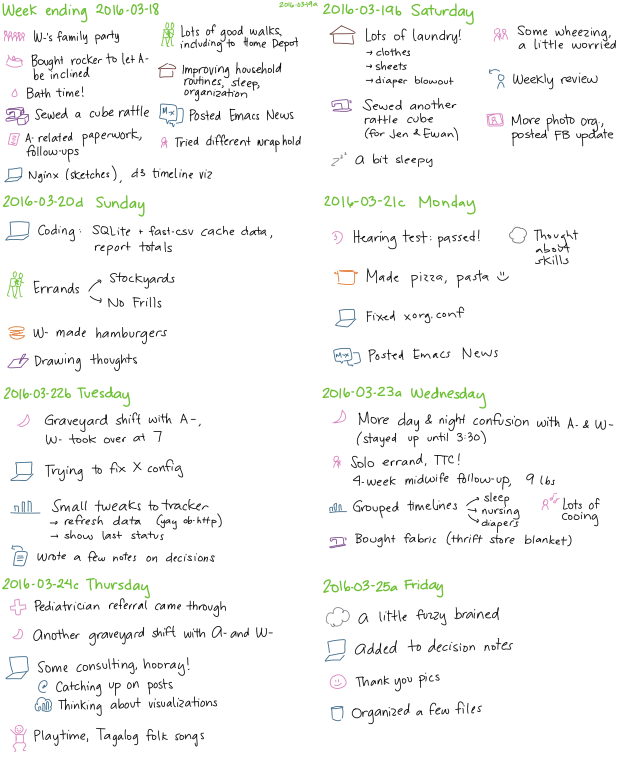 Week ending 2016-03-18
2016-03-19a
W-'s family party
Bought rocker to let A-
be inclined
Bath time!
Sewed a cube rattle
A-related paperwork,
follow-ups
Nginx (sketches), d3 timeline viz
Lots of good walks,
including to Home Depot
Improving household
routines, sleep,
organization
M-x
Posted Emacs News
Tried different wrap hold
2016-03-19b Saturday
Lots of laundry!
→ clothes
→ sheets
→ diaper blowout
Sewed another
rattle cube
(for Jen & Ewan)
zzz
a bit sleepy
Some wheezing,
a little worried
Weekly review
More photo org.,
posted FB update
2016-03-20d Sunday
Coding: SQLite + fast-csv cache data,
report totals
Errands
Stockyards
No Frills
W- made hamburgers
Drawing thoughts
2016-03-21c Monday
Hearing test: passed!
Thought
about
skills
Made pizza, pasta
Fixed xorg.conf
M-x
Posted Emacs News
2016-03-22b Tuesday
Graveyard shift with A-,
W- took over at 7
Trying to fix X config
Small tweaks to tracker
→ refresh data (yay ob-http)
→ show last status
Wrote a few notes on decisions
2016-03-23a Wednesday
More day & night confusion with A- & W-
(stayed up until 3:30)
Solo errand, TTC!
4-week midwife follow-up, 9 lbs
Grouped timelines
sleep
nursing
diapers
Lots of
cooing
Bought fabric (thrift store blanket)
2016-03-24c Thursday
Pediatrician referral came through
Another graveyard shift with A- and W-
Some consulting, hooray!
Catching up on posts
Thinking about visualizations
Playtime, Tagalog folk songs
2016-03-25a Friday
a little fuzzy brained
Added to decision notes
Thank you pics
Organized a few files